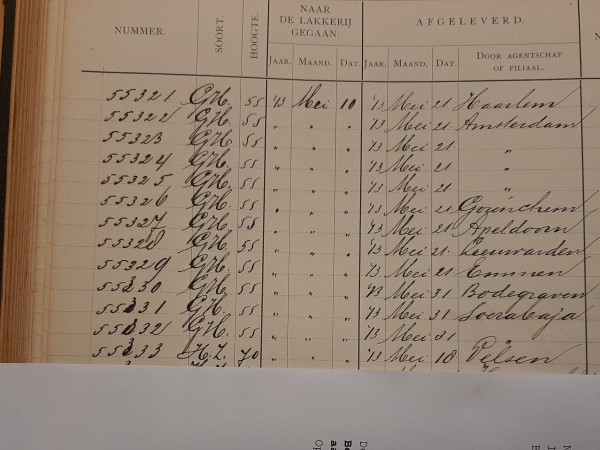 NAAR DE LAKKERIJ GEGAAN. AFGELEVERD.
NUMMER. SOORT. HOOGTE. JAAR. MAAND. DAT. JAAR. MAAND. DAT. DOOR AGENTSCHAP OF FILIAAL.
55321 G.H. 55 '13 Mei 10 '13 Mei 21 Haarlem
55322 G.H. 55 " " " '13 Mei 21 Amsterdam
55323 G.H. 55 " " " '13 Mei 21 "
55324 G.H. 55 " " " '13 Mei 21 "
55325 G.H. 55 " " " '13 Mei 21 "
55326 G.H. 55 " " " '13 Mei 21 Gorinchem
55327 G.H. 55 " " " '13 Mei 21 Apeldoorn
55328 G.H. 55 " " " '13 Mei 21 Leeuwarden
55329 G.H. 55 " " " '13 Mei 21 Emmen
55330 G.H. 55 " " " '13 Mei 31 Bodegraven
55331 G.H. 55 " " " '13 Mei 31 Soerabaja
55332 G.H. 55 " " " '13 Mei 31 "
55333 H.Z. 70 " " " '13 Mei 18 Velsen